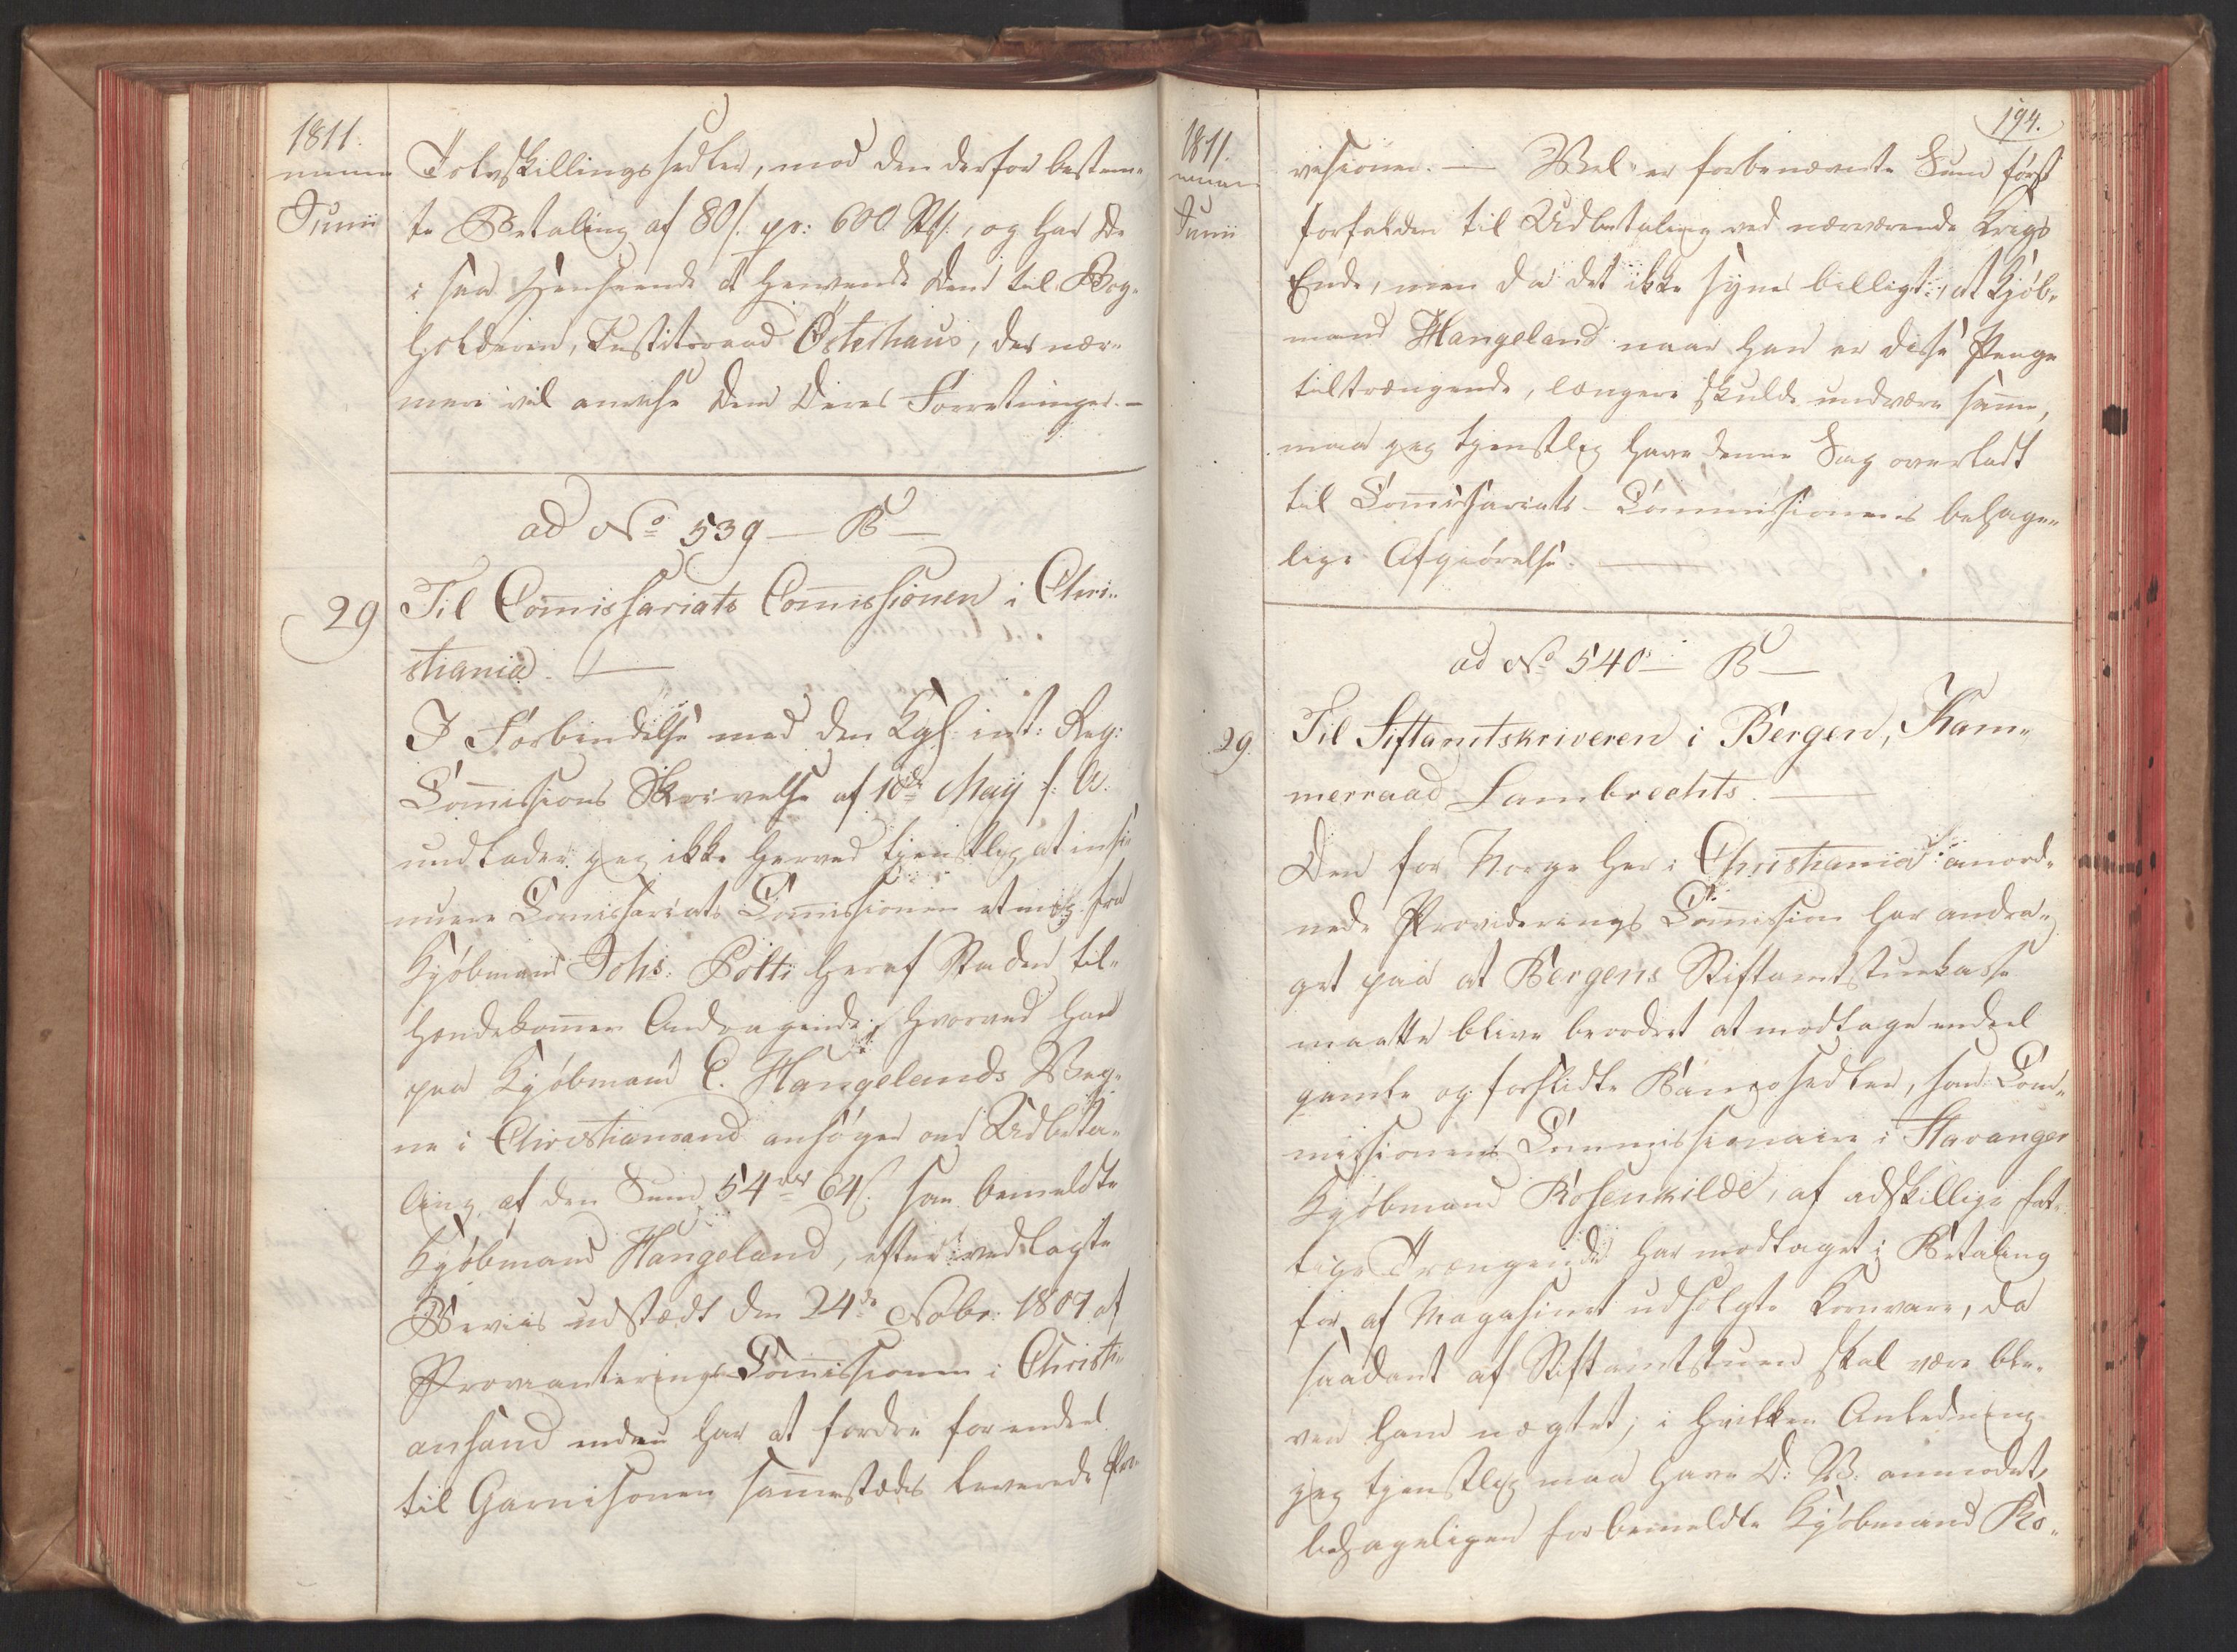 1811.
Junii
Tolvskillingssedler, mod den derfor bestem-
te Betaling af 80/. pr: 600 Stk:, og har De
i saa Henseende at henvende Dem til Bog-
holderen, Justitsraad Østerhaus, der nær-
mere vil anvise Dem Deres Forretninger.-
ad No 539 - B -
29
Til Comissariats Comissionen i Chri-
stiania. -
I Forbindelse med den Kgl: int: Reg:
Comissions Skrivelse af 10de Maij f: A:
undlader jeg ikke herved tjenstligst at insi-
nuere Comissariats Comissionen et mig fra
Kjøbmand Johs: Poltz her af Staden til-
hændekommen Andragende, hvorved han
paa Kjøbmand C. Hangelands Veg-
ne i Christiansand ansøger om Udbeta-
ling af den Sum 54 rdr 64/. som bemeldte
Kjøbmand Hangeland, efter vedlagte
Beviis udstædt den 24de Nobr: 1807 af
Provianterings Comissionen i Christi-
ansand endnu har at fordre for endeel
til Garnisonen samestæds leverede Pro-
194.
1811.
Junii
visioner. - Vel er forbenævnte Sum først
forfalden til Udbetaling ved nærværende Krigs
Ende, men da det ikke synes billigt, at Kjøb-
mand Hangeland naar han er disse Penge
tiltrængende, længere skulde undvære same,
maa jeg tjenstligst have denne Sag overladt
til Comissariats-Commissionens behage-
lige Afgiørelse. -
ad No 540 - B -
29.
Til Stiftamtskriveren i Bergen, Kam-
merraad Lambrechts. -
Den for Norge her i Christiania anord-
nede Provideerings Comission har andra-
get paa at Bergens Stiftamtstuekasse
maatte blive beordret at modtage endeel
gamle og forslidte Bancosedler, som Com-
missionens Commissionaire i Stavanger
Kjøbmand Rosenkilde, af adskillige fat-
tige Trængende har modtaget i Betaling
for af Magasinet udsolgte Kornvare, da
saadant af Stiftamtstuen skal være ble-
ven ham nægtet; i hvilken Anledning
jeg tjenstligst maa have D: V: anmodet,
behageligen for bemeldte Kjøbmand Ro-